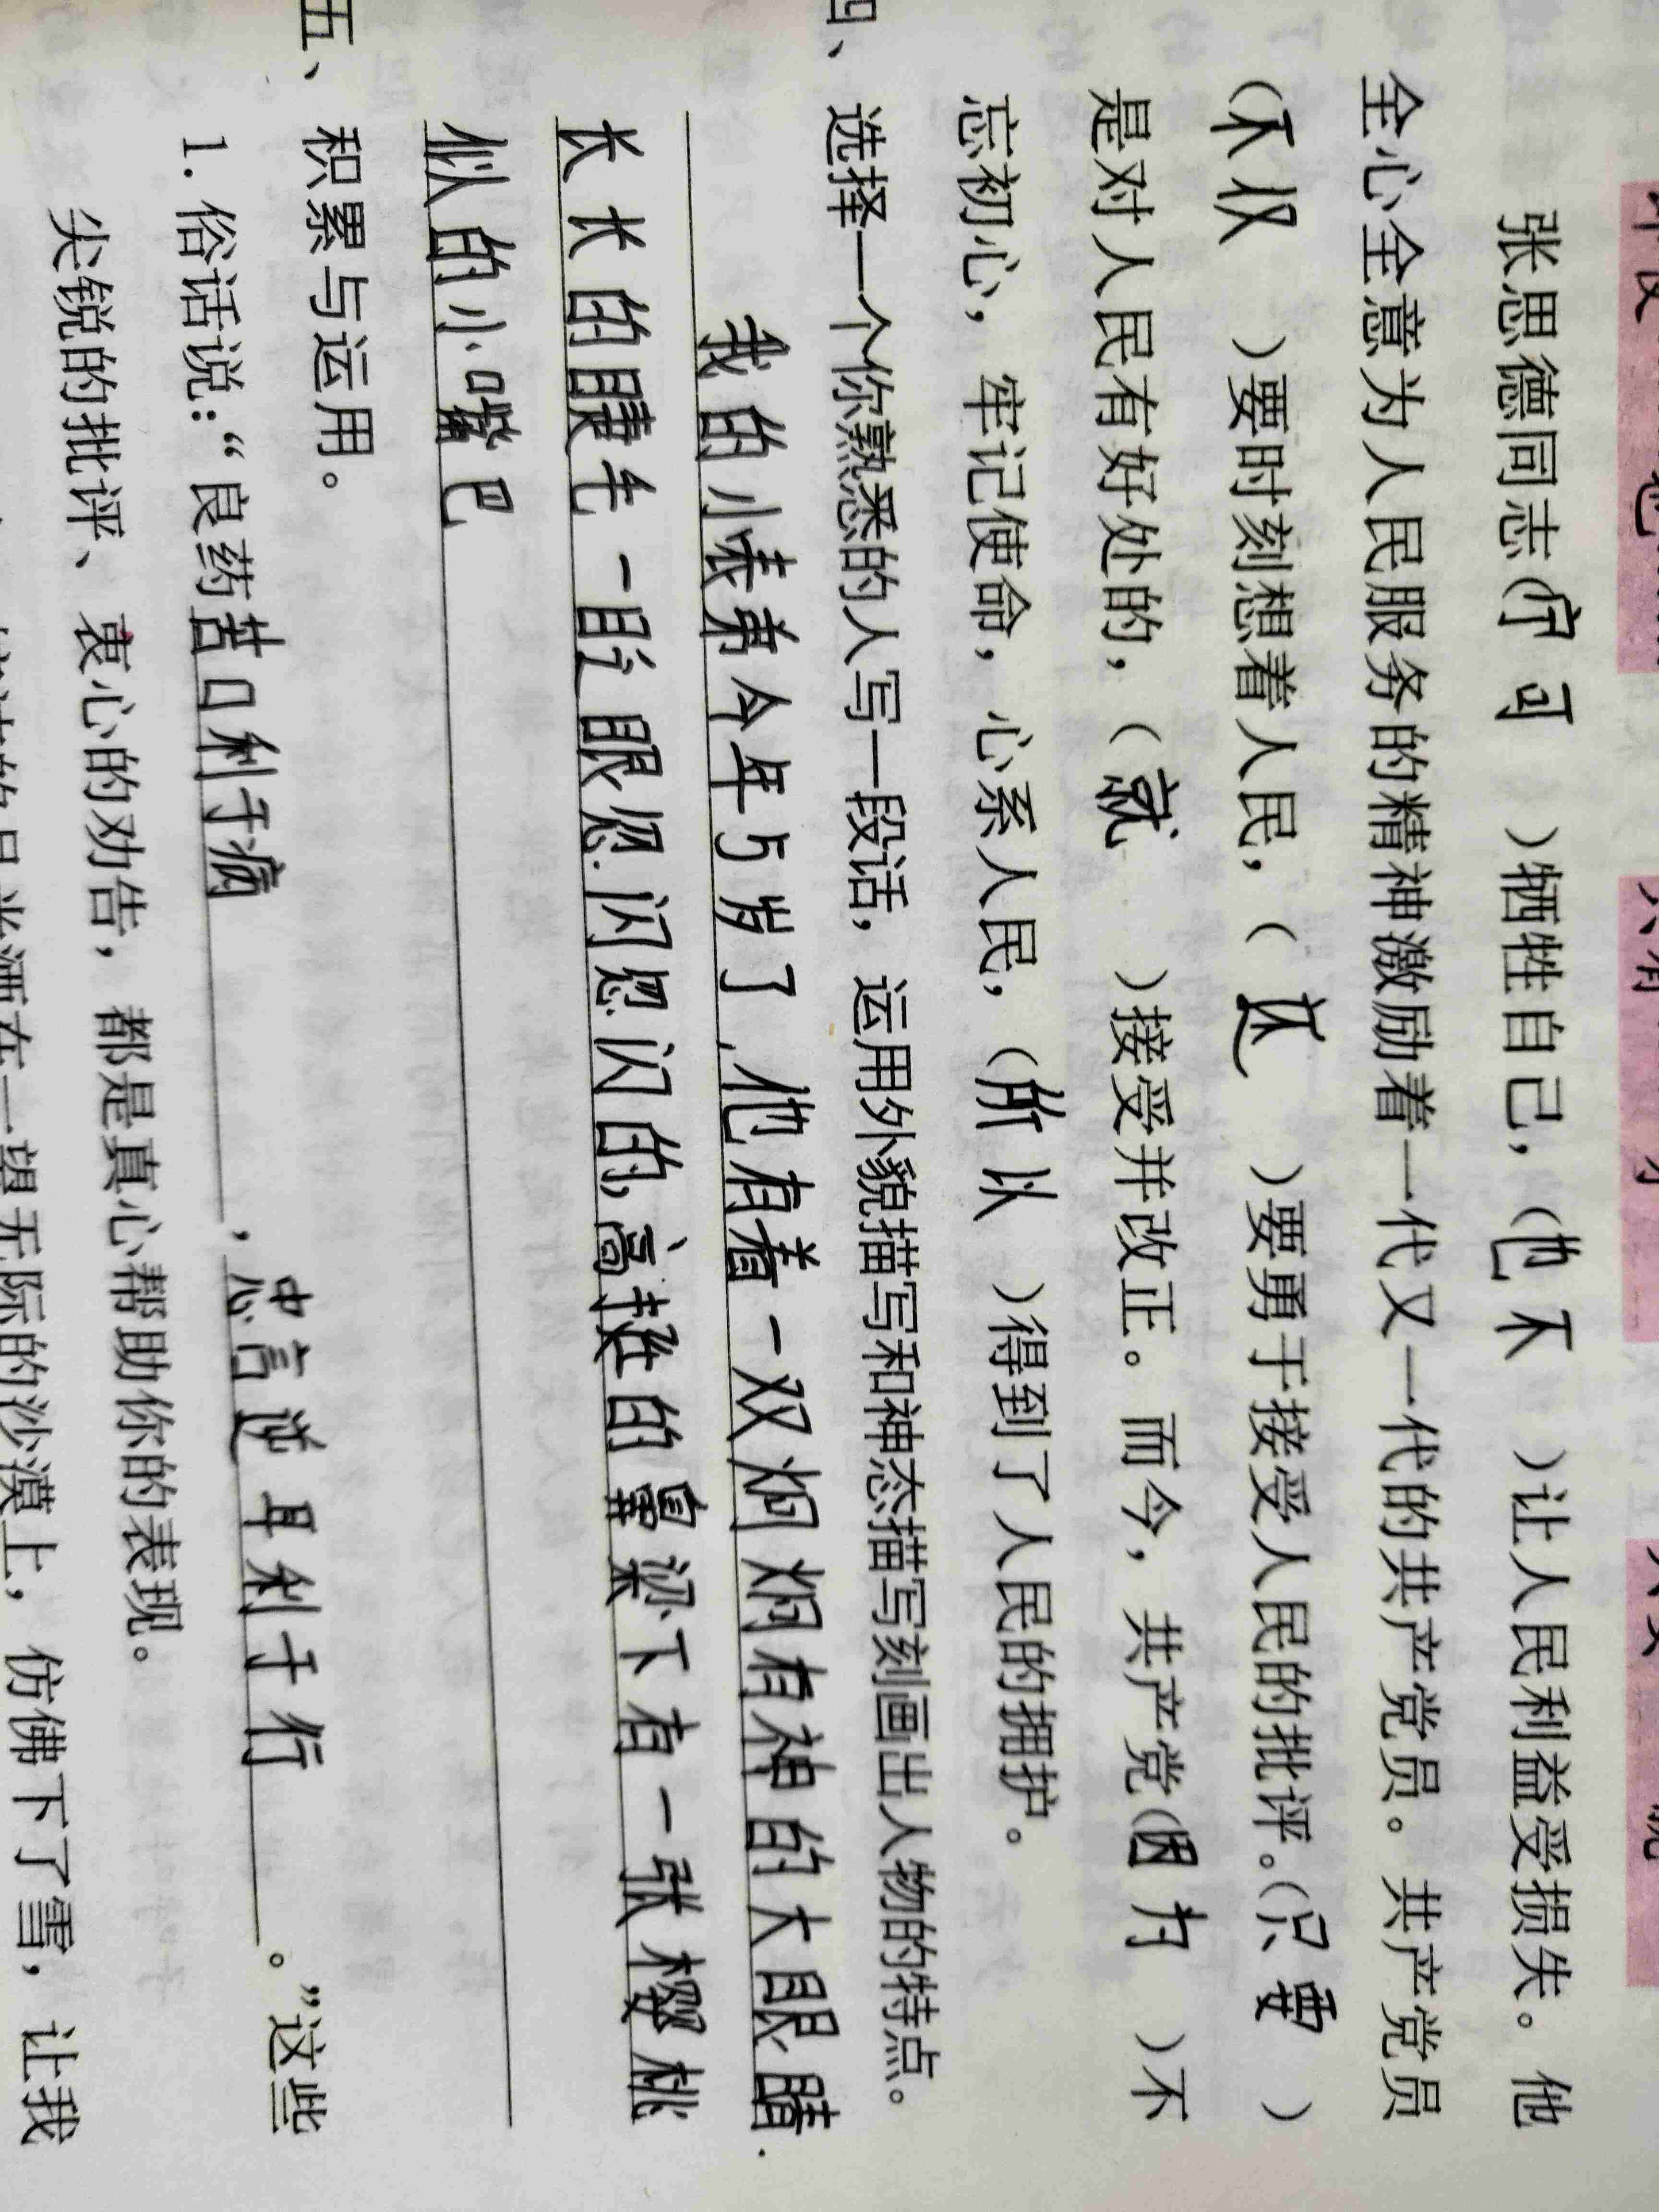 张思德同志(宁可)牺牲自己,(也不)让人民利益受损失。他
全心全意为人民服务的精神激励着一代又一代的共产党员。共产党员
(不仅)要时刻想着人民,(还)要勇于接受人民的批评。(只要)
是对人民有好处的,(就)接受并改正。而今,共产党(因为)不
忘初心,牢记使命,心系人民,(所以)得到了人民的拥护。
四、选择一个你熟悉的人写一段话,运用外貌描写和神态描写刻画出人物的特点。
我的小表弟今年5岁了,他有着一双炯炯有神的大眼睛.
长长的睫毛一眨眼忽闪忽闪的,高挺的鼻梁下有一张樱桃
似的小嘴巴
五、积累与运用。
1. 俗话说:“良药苦口利于病,忠言逆耳利于行。”这些
尖锐的批评、衷心的劝告,都是真心帮助你的表现。
在一望无际的沙漠上,仿佛下了雪,让我